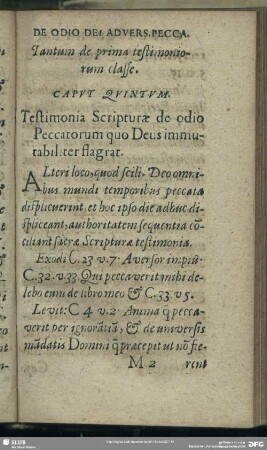 DE ODIO DEI ADVERS. PECCA.
Tantum de prima testimonio-
rum classe.
CAPVT QVINTVM.
Testimonia Scripturæ de odio
Peccatorum quo Deus immu-
tabiliter flagrat.
ALteri loco, quod scili. Deo omni-
bus mundi temporibus peccata
displicuerint, et hoc ipso die adhuc di-
spliceant, authoritatem sequentia cõ-
ciliant sacræ Scripturæ testimonia.
Exodi C. 23. v. 7. Aversor impiũ.
C. 32. v. 33. Qui peccaverit mihi de-
lebo eum de libro meo & C. 33. v 5.
Levit: C 4 v. 2. Anima q̃ pecca-
verit per ignorãtiã, & de universis
mãdatis Domini q̃ præcepit ut nõ fie-
M 2 rent
SLUB
DFG